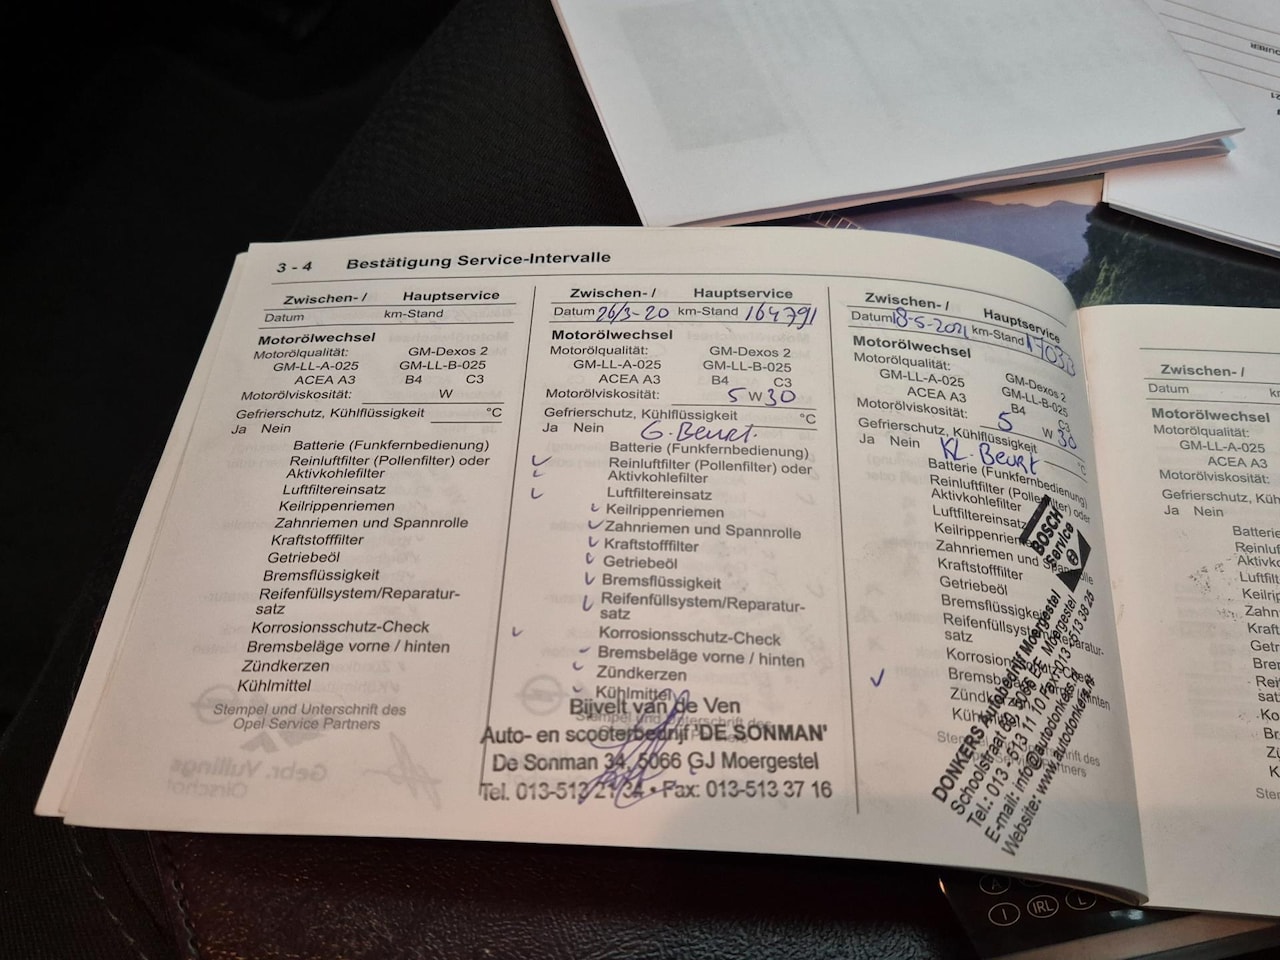 3 - 4 Bestätigung Service-Intervalle
Zwischen- / Hauptservice
Datum km-Stand
Motorölwechsel
Motorölqualität: GM-Dexos 2
GM-LL-A-025 GM-LL-B-025
ACEA A3 B4 C3
Motorölviskosität: W
Gefrierschutz, Kühlflüssigkeit °C
Ja Nein
Batterie (Funkfernbedienung)
Reinluftfilter (Pollenfilter) oder
Aktivkohlefilter
Luftfiltereinsatz
Keilrippenriemen
Zahnriemen und Spannrolle
Kraftstofffilter
Getriebeöl
Bremsflüssigkeit
Reifenfüllsystem/Reparatur-
satz
Korrosionsschutz-Check
Bremsbeläge vorne / hinten
Zündkerzen
Kühlmittel
Stempel und Unterschrift des
Opel Service Partners
Zwischen- / Hauptservice
Datum 26/3-20 km-Stand 164791
Motorölwechsel
Motorölqualität: GM-Dexos 2
GM-LL-A-025 GM-LL-B-025
ACEA A3 B4 C3
Motorölviskosität: 5 W 30
Gefrierschutz, Kühlflüssigkeit °C
Ja Nein G. Beurt.
Batterie (Funkfernbedienung)
Reinluftfilter (Pollenfilter) oder
Aktivkohlefilter
Luftfiltereinsatz
Keilrippenriemen
Zahnriemen und Spannrolle
Kraftstofffilter
Getriebeöl
Bremsflüssigkeit
Reifenfüllsystem/Reparatur-
satz
Korrosionsschutz-Check
Bremsbeläge vorne / hinten
Zündkerzen
Kühlmittel
Bijvelt van de Ven
Stempel und Unterschrift des
Auto- en scooterbedrijf 'DE SONMAN'
De Sonman 34, 5066 GJ Moergestel
Tel. 013-513 21 34 • Fax: 013-513 37 16
Zwischen- / Hauptservice
Datum 18-5-2021 km-Stand
Motorölwechsel
Motorölqualität: GM-Dexos 2
GM-LL-A-025 GM-LL-B-025
ACEA A3 B4 C3
Motorölviskosität: 5 W 30
Gefrierschutz, Kühlflüssigkeit °C
Ja Nein KL. Beurt
Batterie (Funkfernbedienung)
Reinluftfilter (Pollenfilter) oder
Aktivkohlefilter
Luftfiltereinsatz
Keilrippenriemen
Zahnriemen und Spannrolle
Kraftstofffilter
Getriebeöl
Bremsflüssigkeit
Reifenfüllsystem/Reparatur-
satz
Korrosionsschutz-Check
Bremsbeläge vorne / hinten
Zündkerzen
BOSCH
Service
DONKERS Autobedrijf Moergestel
Schoolstraat 5066 Moergestel
Tel.: 013 - 513 11 10 Fax: 013 - 513 38 25
E-mail: info@autodonkers.nl
Website: www.autodonkers.nl
Zwischen- /
Datum
Motorölwechsel
Motorölqualität:
GM-LL-A-025
ACEA A3
Motorölviskosität:
Gefrierschutz,
Ja Nein
I IRL L